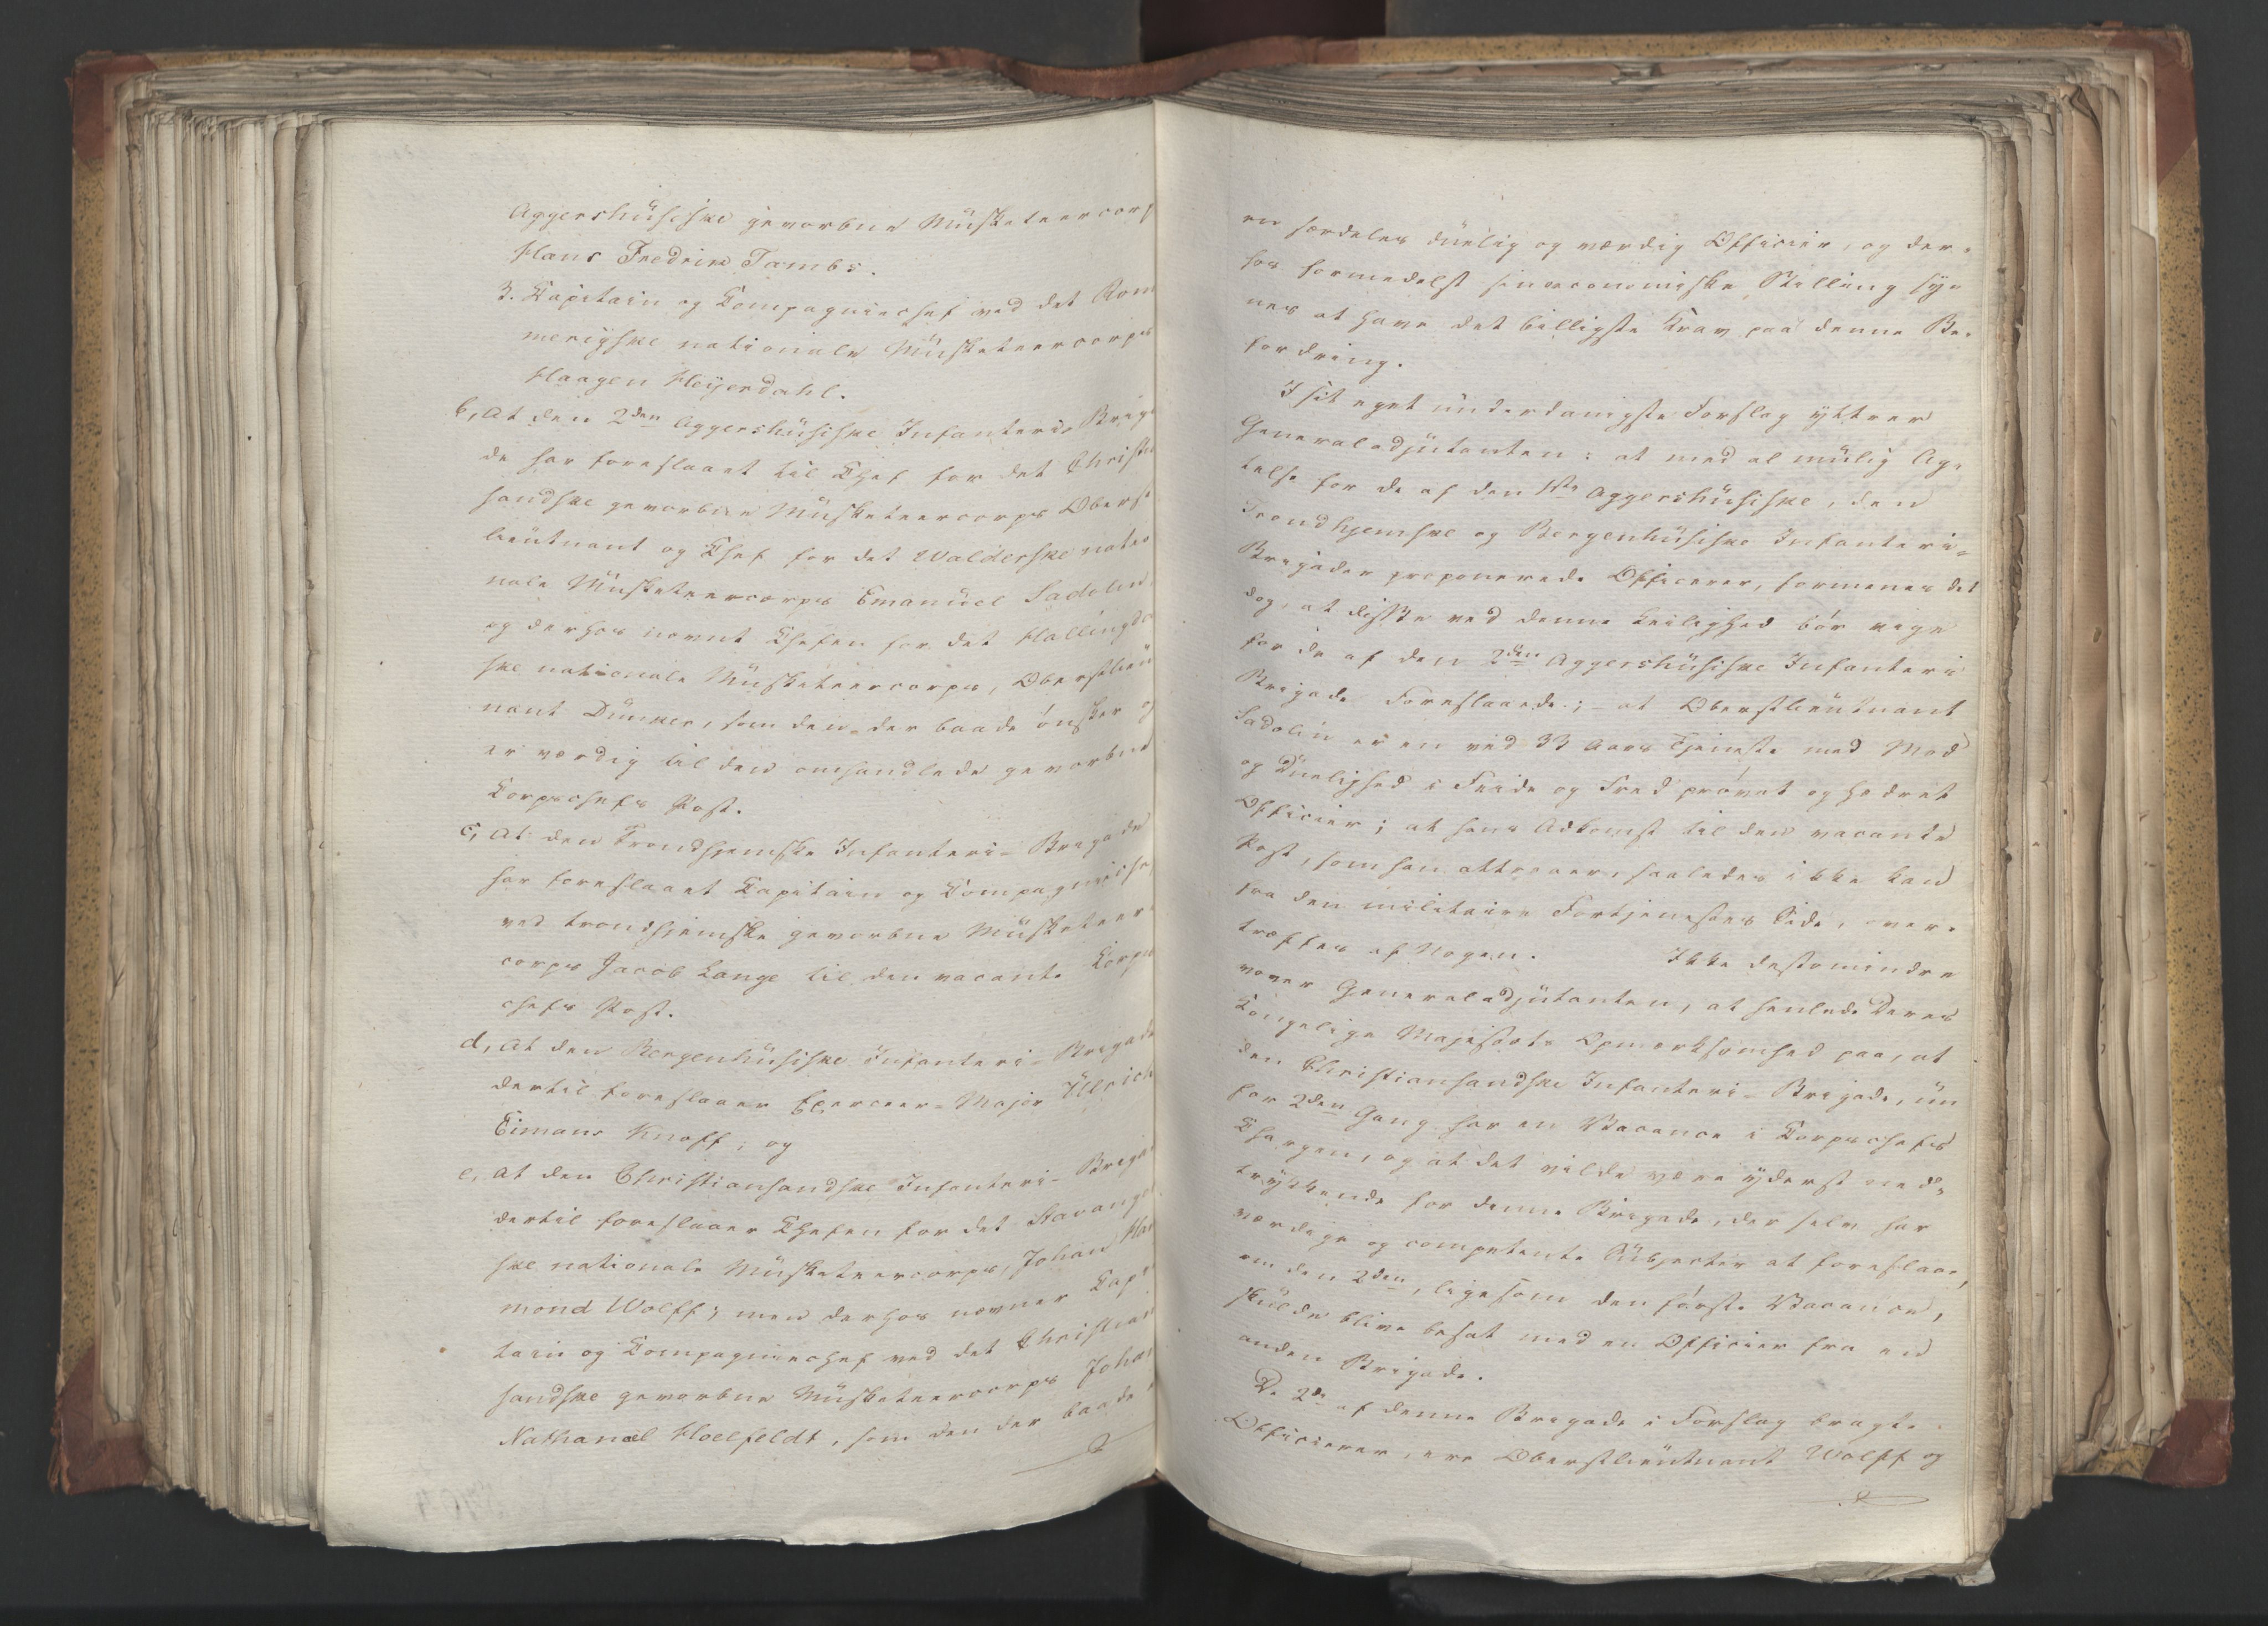 Aggershüsiske gevorbne Müsketeercorps
Hans Fredrik Tambs.
3. Capitain og Compagniechef ved det Rom
merigske nationale Müsketeercorps
Haagen Heyerdahl.
b, At den 2den Aggershüsiske Infanteri-Briga
de har foreslaaet til Chef for det Christi
sandske gevorbne Müsketeercorps Oberst
lieütnant og Chef for det Walderske natio
nale Müsketeercorps Emanüel Sadolin,
og derhos nævnt Chefen for det Hallingda
ske nationale Müsketeercorps, Oberstlieü
nant Düncker, som den, der baade ønsker og
er værdig til den omhandlede gevorbne
Corpschefs Post.
c, At den Trondhjemske Infanteri-Brigade
har foreslaaet Capitain og Compagniechef
ved trondhjemske gevorbne Müsketeer-
corps Jacob Lange til den vacante Corps
chefs Post.
d, At den Bergenhüsiske Infanteri-Brigade
dertil foreslaaer Exerceer-Major Ülrich
Eimans Knoff; og
e, At den Christiansandske Infanteri-Briga
dertil foreslaaer Chefen for det Stavanger
ske nationale Müsketeercorps, Johan Her
mond Wolff; men derhos nævner Capi
tain og Compagniechef ved det Christian
sandske gevorbne Müsketeercorps Johan
Nathanael Hoelfeldt, som den der baade
en særdeles düelig og værdig Officier, og der-
hos formedelst sin oeconomiske Stilling sy-
nes at have det billigste Krav paa denne Be-
fordring.
I sit eget ünderdanigste Forslag yttrer
Generaladjütanten: at med al mülig Ag-
telse for de af den 1ste Aggershüsiske, den
Trondhjemske og Bergenhüsiske Infanteri-
Brigader proponerede Officerer, formenes det
dog, at disse ved denne Leilighed bör vige
for de af den 2den Aggershüsiske Infanteri
Brigade Foreslaaede; - at Oberstlieütnant
Sadolin er en ved 33 Aars Tjeneste med Mod
og Düelighed i Feide og Fred prövet og hædret
Officier; at hans Adkomst til den vacante
Post, som han attraaer, saaledes ikke kan
fra den militaire Fortjenestes Side, over-
træffes af Nogen. Ikke destomindre
vover Generaladjütanten, at henlede Deres
Kongelige Majestæts Opmærksomhed paa, at
den Christiansandske Infanteri-Brigade, nü
for 2den Gang har en Vacance i Corpschefs
Chargen, og at det vilde være yderst ned-
trykkende for denne Brigade, der selv har
værdige og competente Sübjecter at foreslaae,
om den 2den, ligesom den første Vacance,
skülde blive besat med en Officier fra en
anden Brigade.
De 2de af denne Brigade i Forslag bragte
Officierer, ere Oberstlieütnant Wolff og